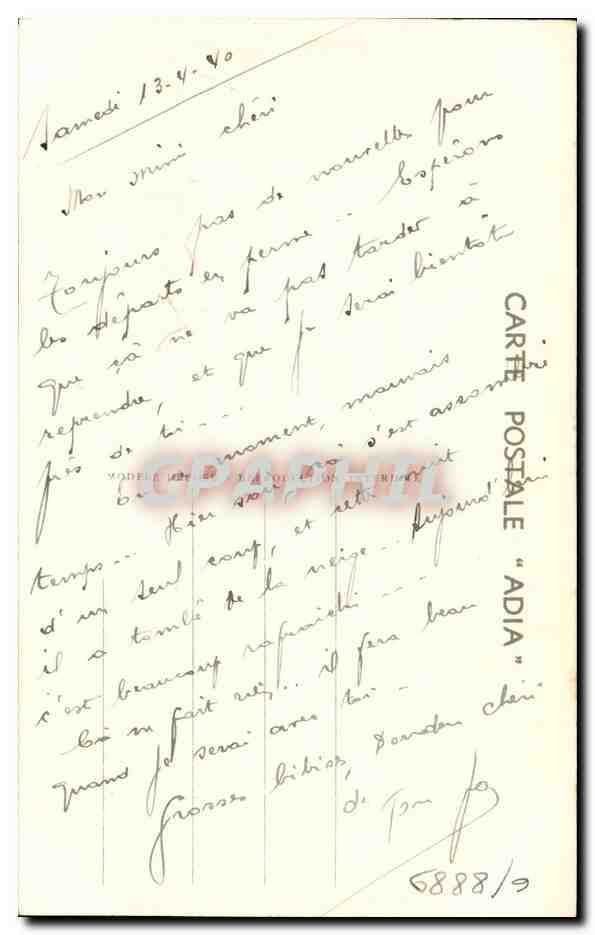 Samedi 13-4-40
Mon mimi chéri
Toujours pas de nouvelles pour
les départs en perme... Espérons
que çà ne va pas tarder à
reprendre, et que je serai bientôt
près de toi....
En ce moment, mauvais
temps... Hier soir, ça s'est assombri
d'un seul coup, et cette nuit
il a tombé de la neige... Aujourd'hui
c'est beaucoup rafraichi....
Cà m fait rien... il fera beau
quand je serai avec toi..
Grosses bibises, Doudou chéri
de Ton Jo
CARTE POSTALE "ADIA"
MODÈLE DÉPOSÉ REPRODUCTION INTERDITE
CPAPHIL
6888/9